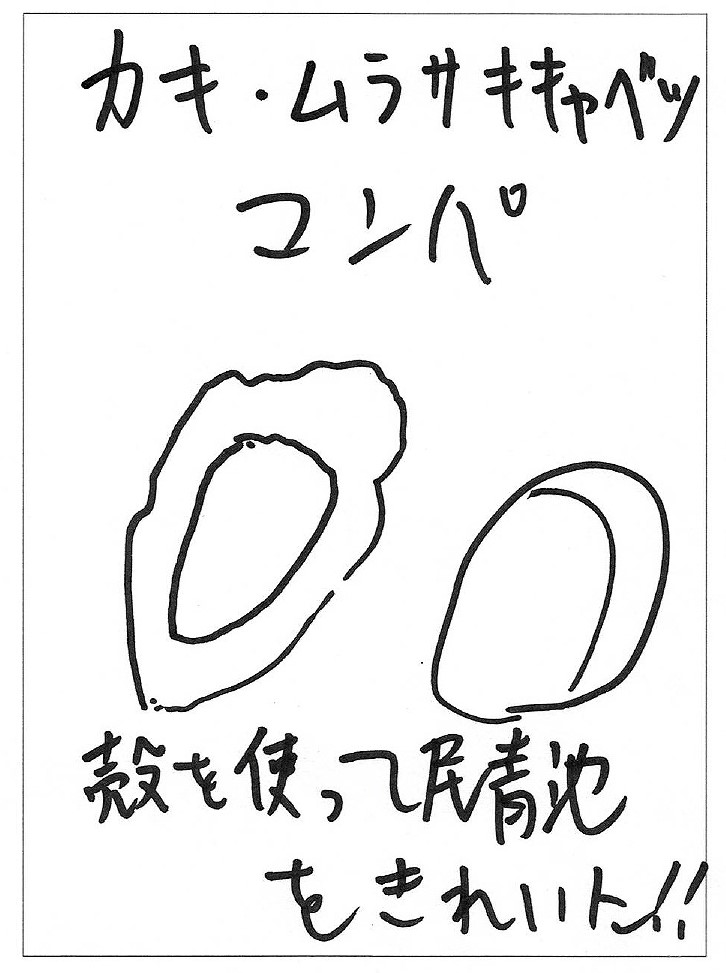 カキ・ムラサキキャベツ
コンペ
殻を使って民青池
をきれいに!!